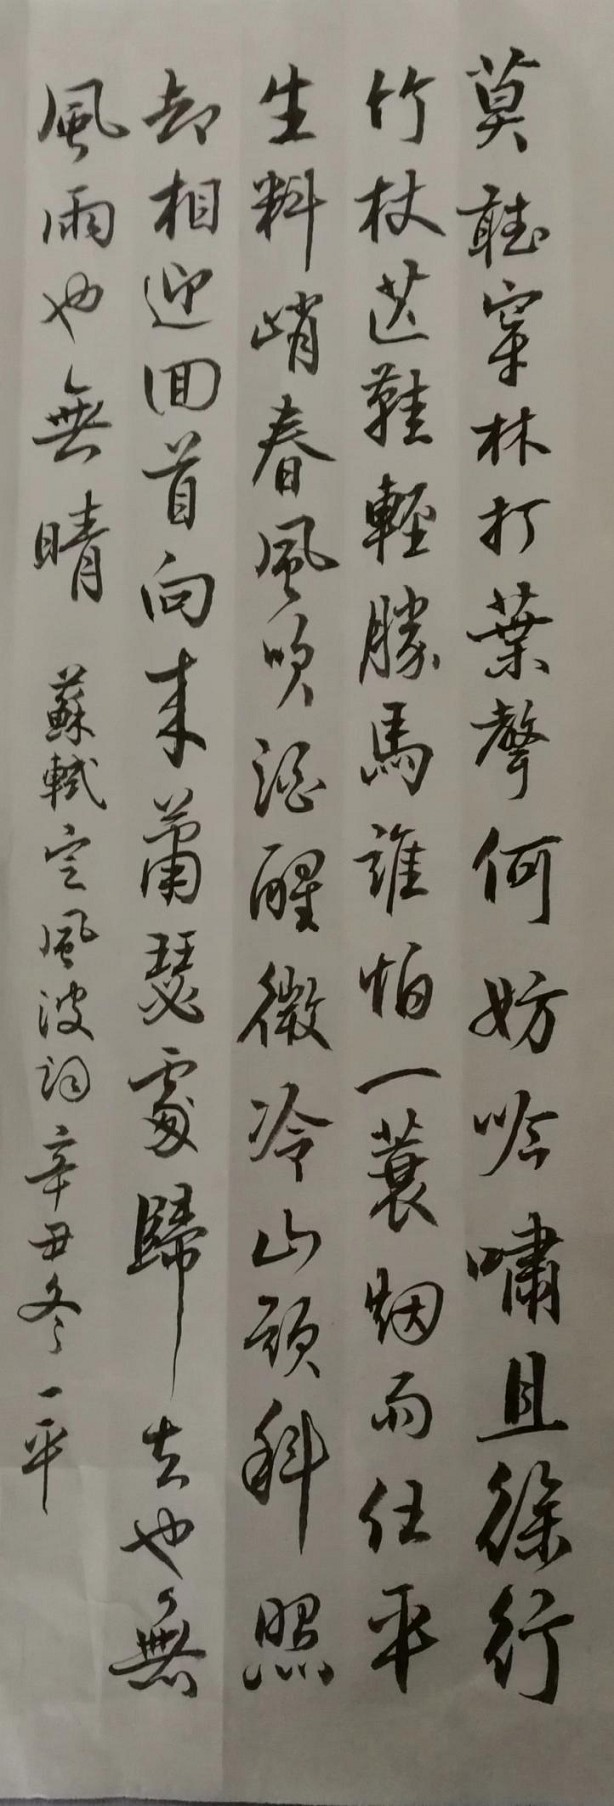 莫聽穿林打葉聲何妨吟嘯且徐行
竹杖芒鞋輕勝馬誰怕一蓑烟雨任平
生料峭春風吹酒醒微冷山頭斜照
却相迎回首向来蕭瑟處歸去也無
風雨也無晴
蘇軾定風波詞辛丑冬一平